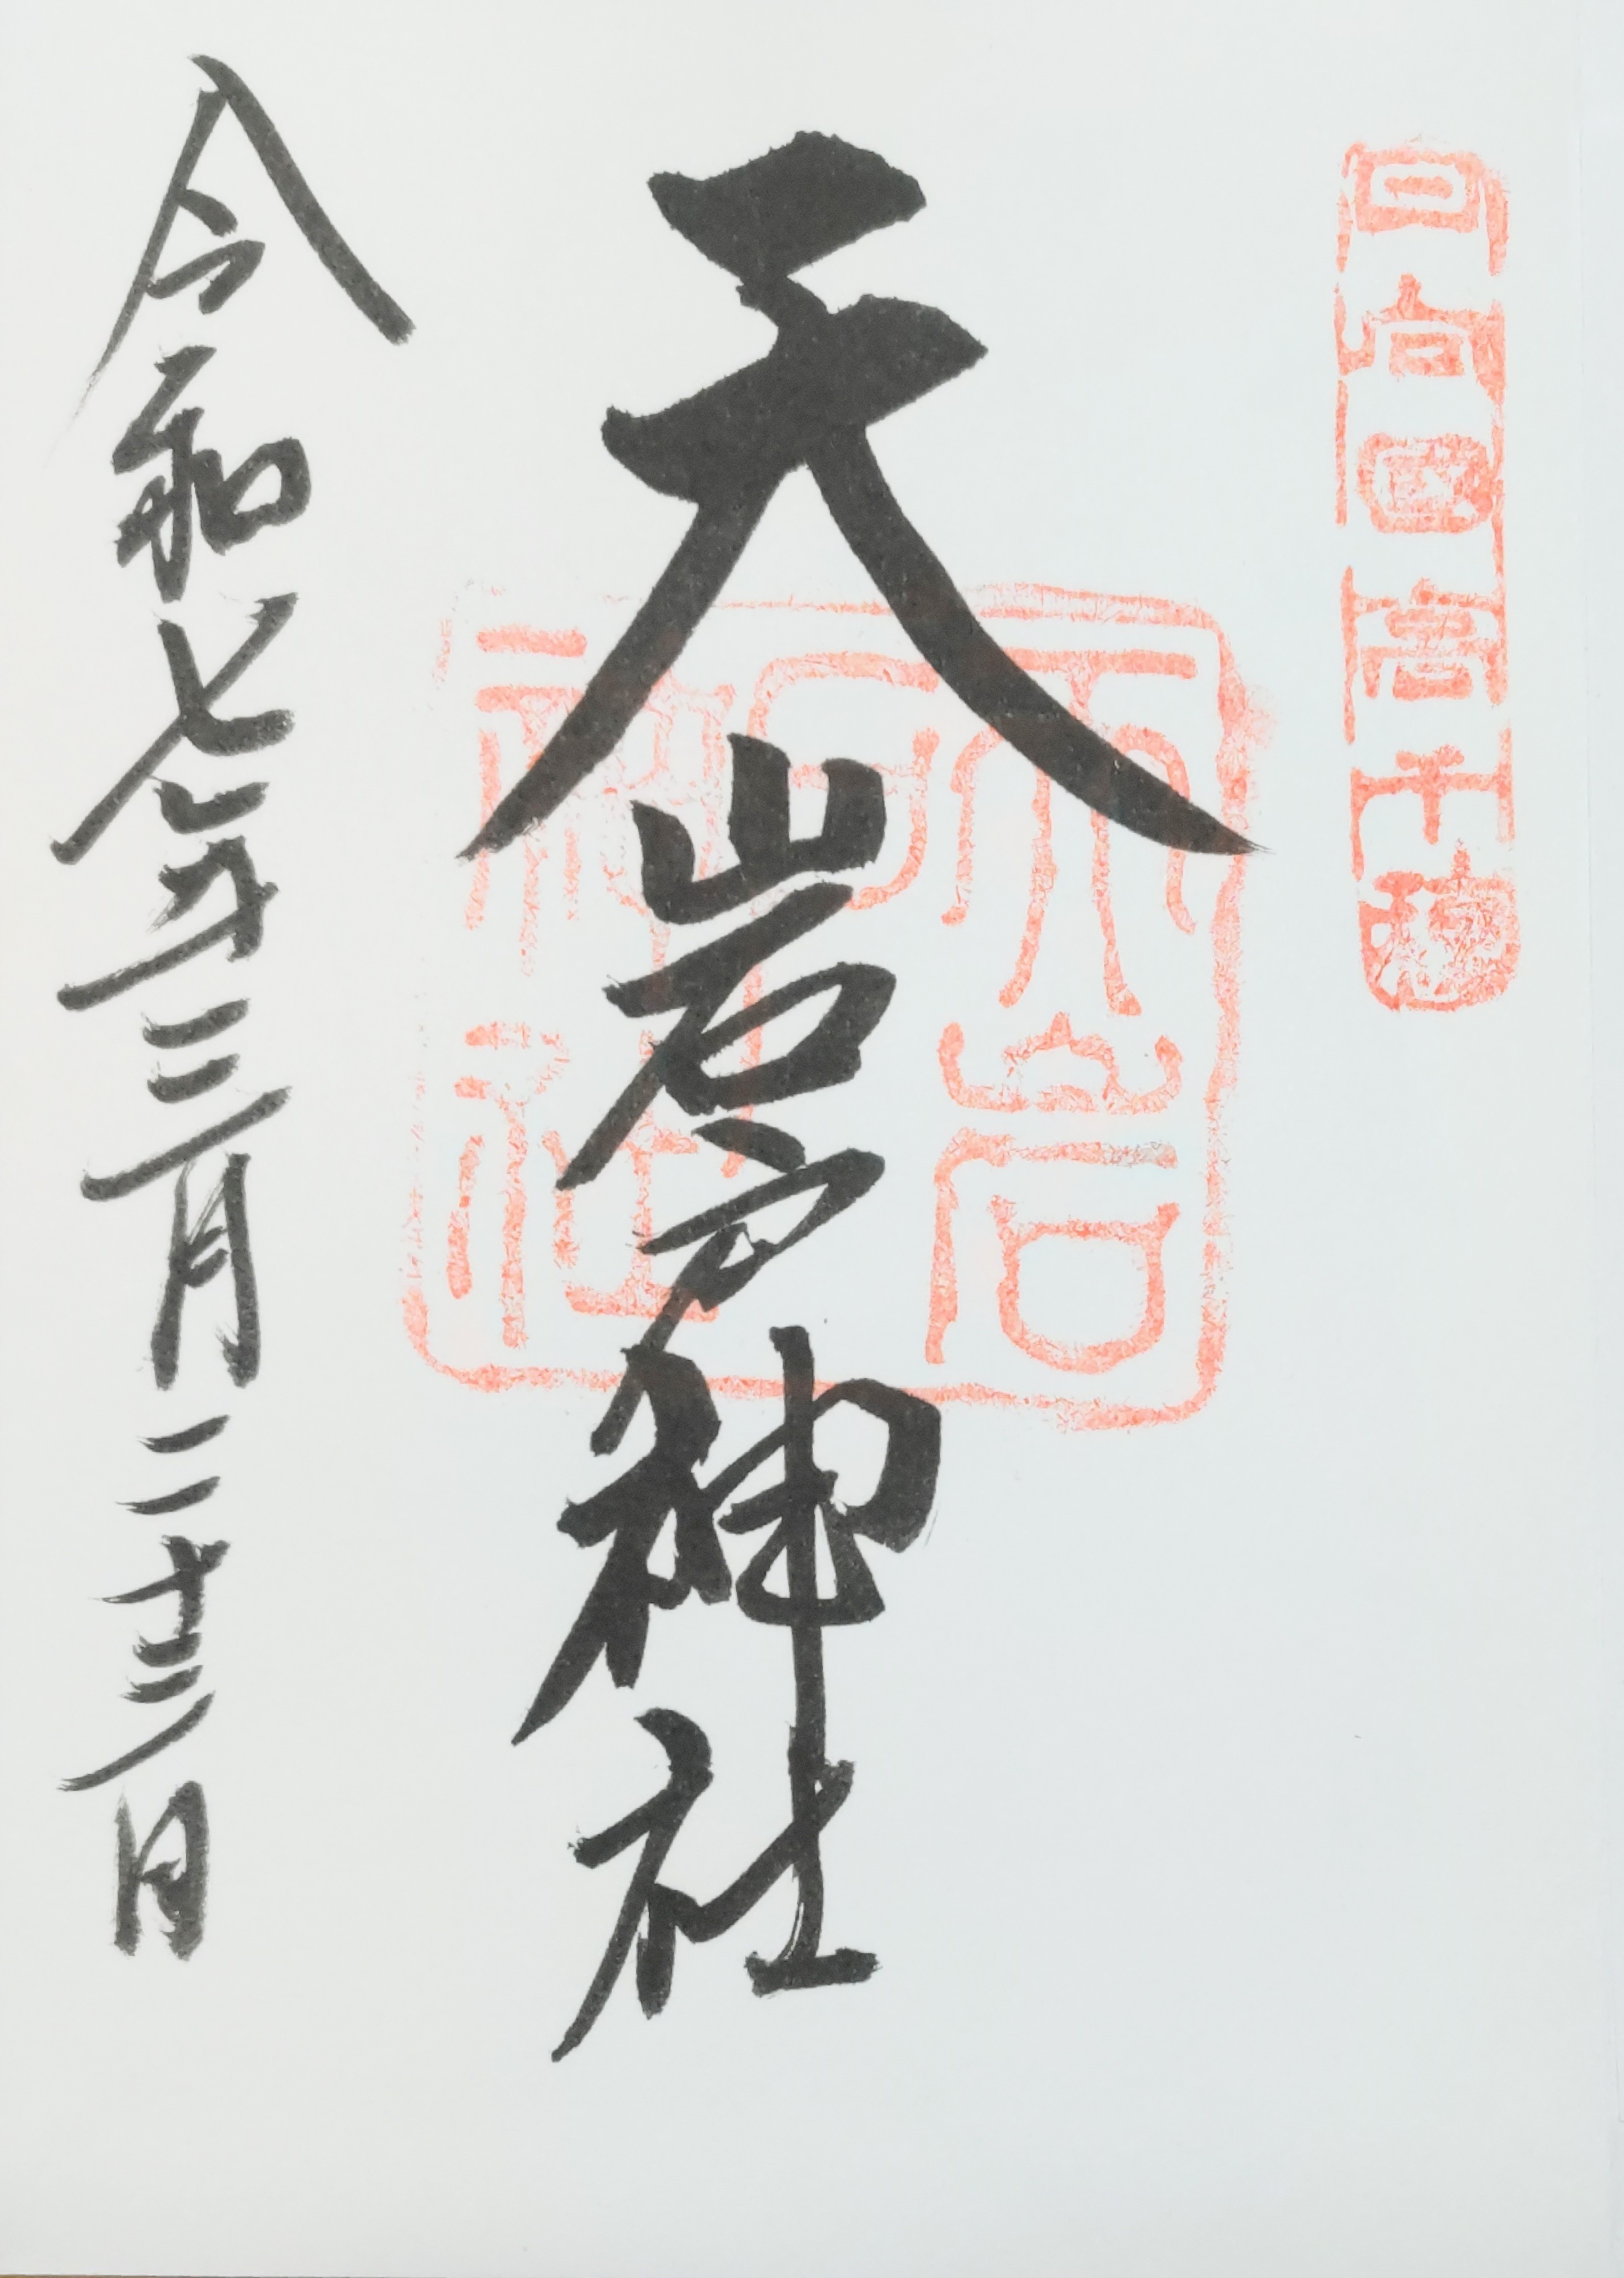 日向國高千穂
天岩戸神社
天岩戸神社
令和七年三月二十三日